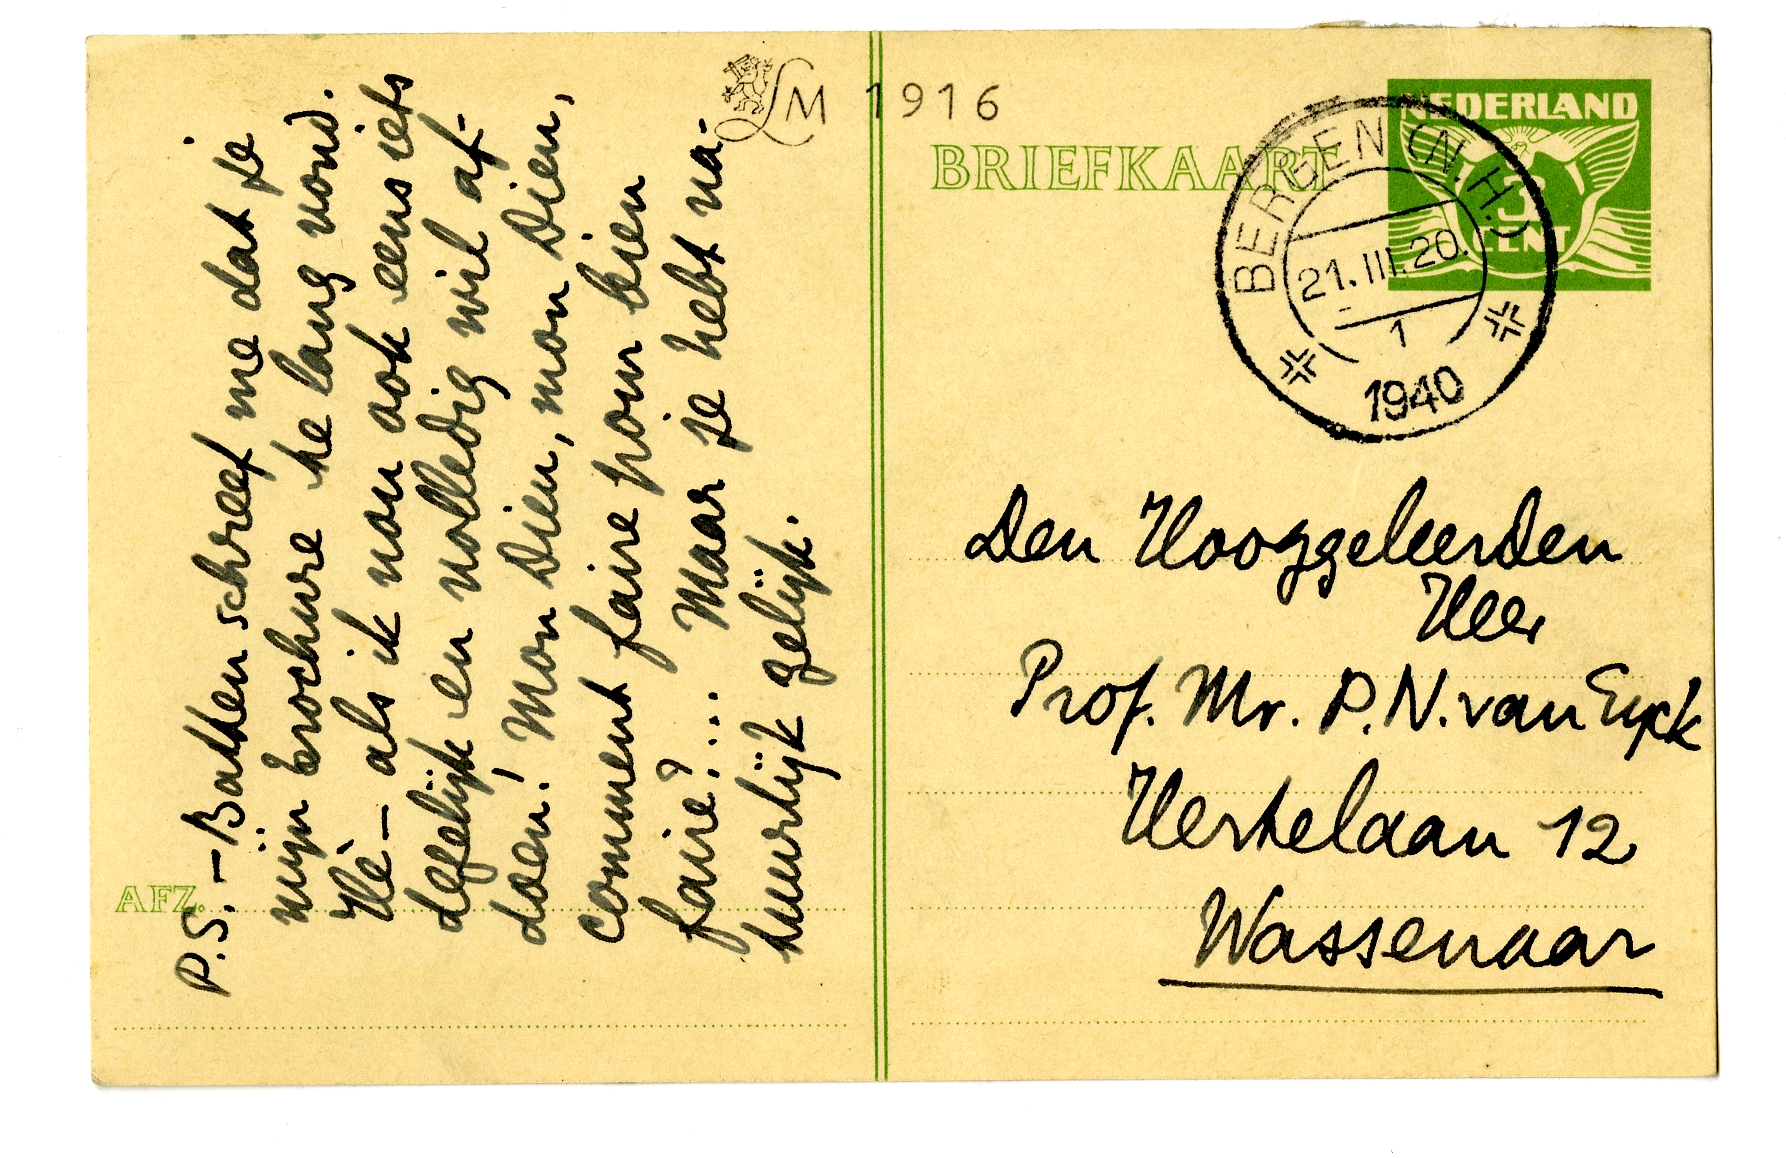 P.S. — Batten schreef me dat je
mijn brochure te lang vond.
Hè — als ik nou ook eens iets
defelijk en volledig wil af-
doen! Mon Dieu, mon Dieu,
comment faire pour bien
faire?... Maar je hebt na-
tuurlijk gelijk.
AFZ.
LM 1916
BRIEFKAART
NEDERLAND
3
CENT
BERGEN (N.H.)
21.III.20.
1
1940
Den Hooggeleerden
Heer
Prof. Mr. P. N. van Eyck
Herkelaan 12
Wassenaar